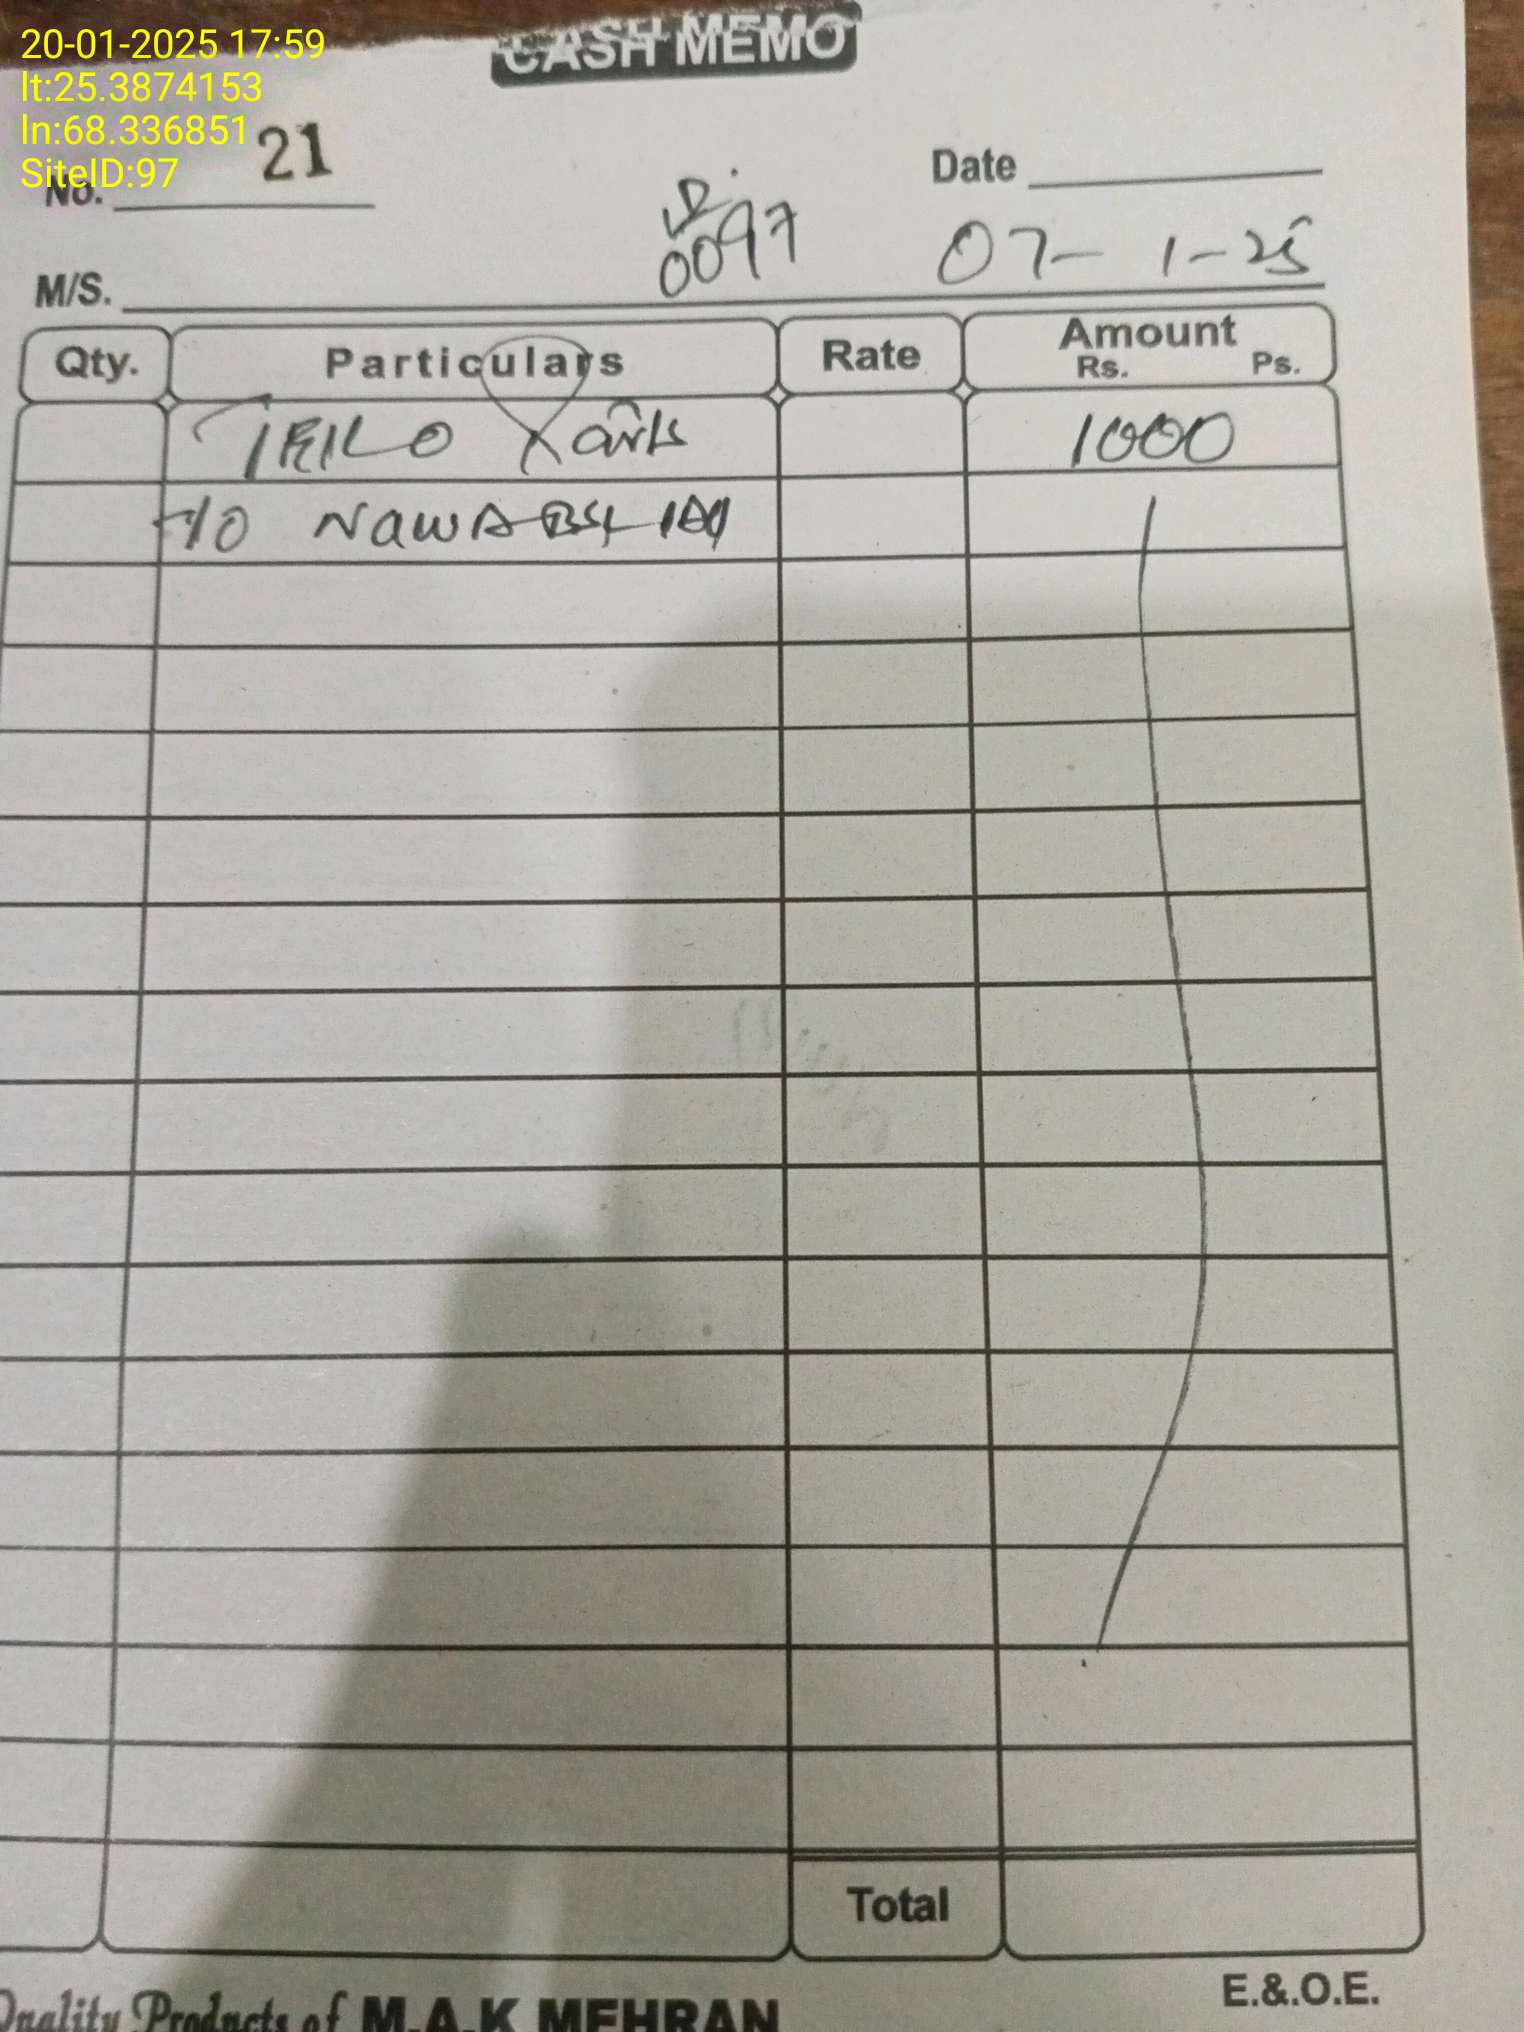 20-01-2025 17:59
lt:25.3874153
ln:68.336851
SiteID:97
CASH MEMO
No. 21
Date
0097
07-1-25
M/S.
Qty. Particulars Rate Amount Rs. Ps.
1000
Total
E.&.O.E.
Quality Products of M.A.K MEHRAN